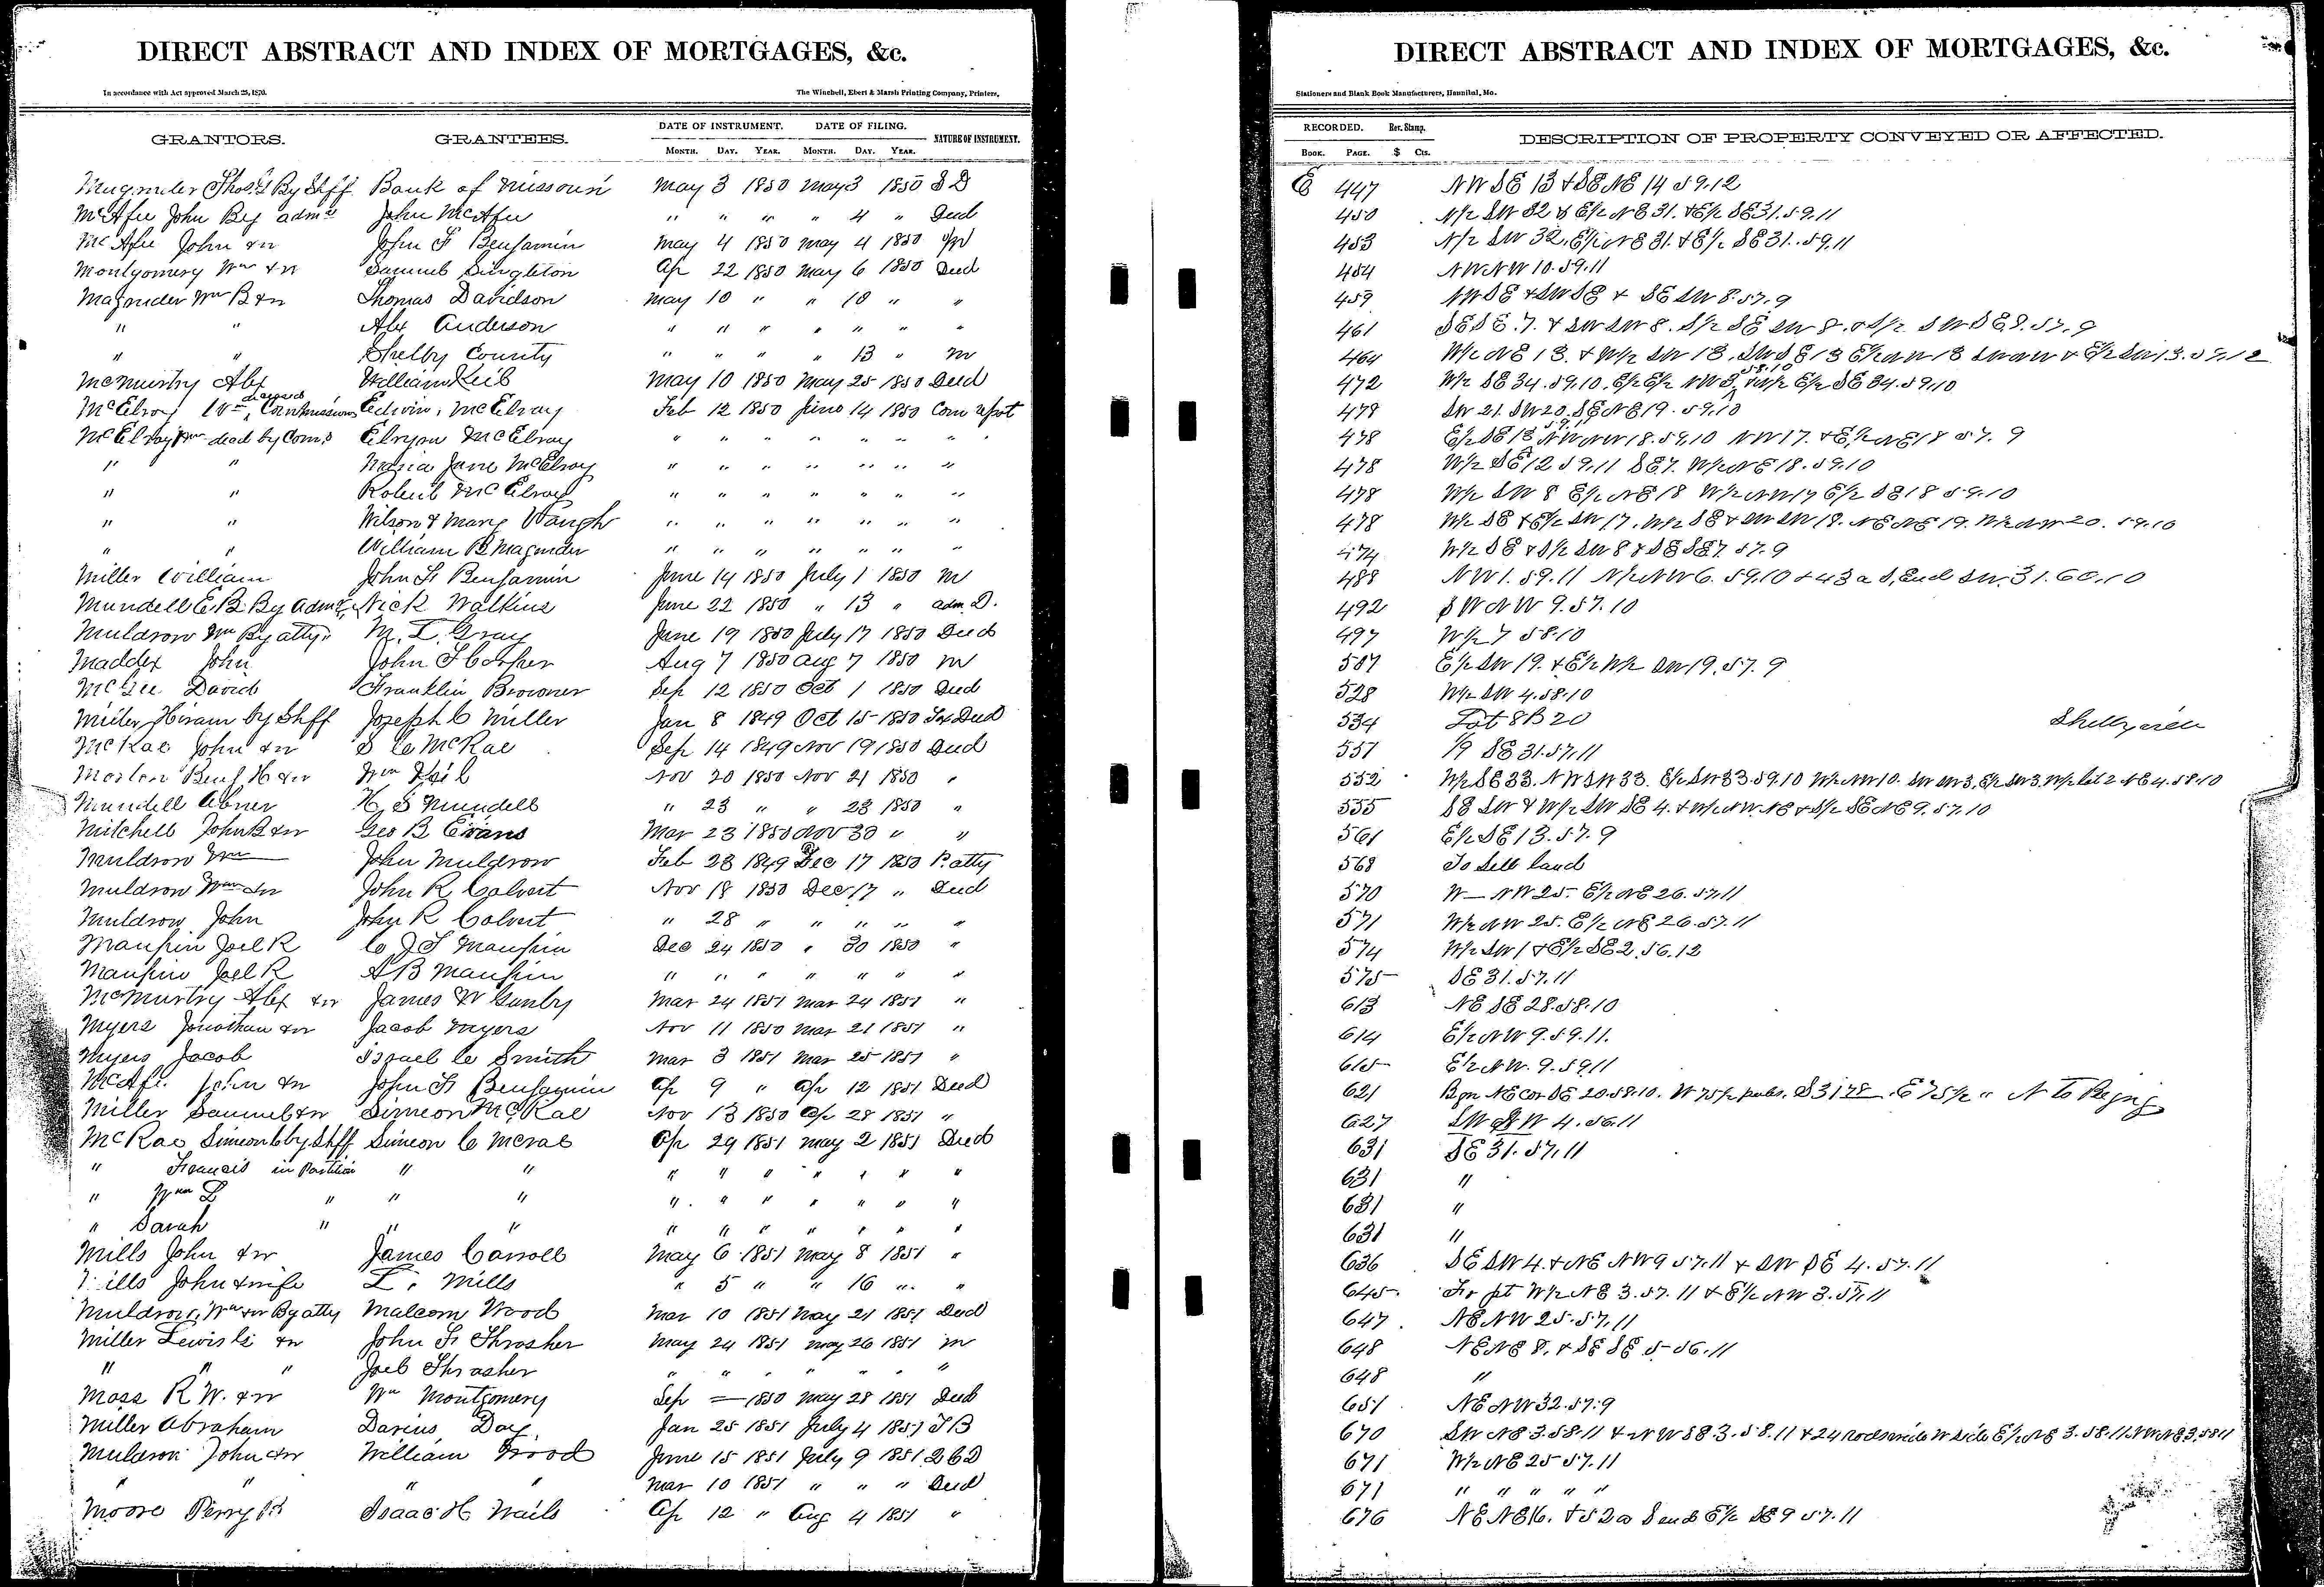 DIRECT ABSTRACT AND INDEX OF MORTGAGES, &c.
In accordance with Act approved March 25, 1870. The Winchell, Ebert & Marsh Printing Company, Printers,
GRANTORS. GRANTEES. DATE OF INSTRUMENT. DATE OF FILING. NATURE OF INSTRUMENT.
MONTH. DAY. YEAR. MONTH. DAY. YEAR.
Thos By Shff Bank of Missouri May 3 1850 May 3 1850 S D
McAfee John By adm John McAfee " " " " 4 " Deed
McAfee John & w John F Benjamin May 4 1850 May 4 1850 M
Montgomery Wm & w Samuel Singleton Ap 22 1850 May 6 1850 Deed
Magruder Wm B & w Thomas Davidson May 10 " " 10 " "
" " Alex Anderson " " " " " " "
" " Shelby County " " " " 13 " M
McMurtry Alex William Keil May 10 1850 May 25 1850 Deed
McElroy deceased Commissioners Edwin McElroy Feb 12 1850 June 14 1850 Com Repot
McElroy Wm decd by Coms McElroy " " " " " " " "
" " Maria Jane McElroy " " " " " " "
" " Robert McElroy " " " " " " "
" " Wilson & Mary Vaugh " " " " " " "
" " William B Magruder " " " " " " "
Miller William John F Benjamin June 14 1850 July 1 1850 M
Mundell E B By Adm Nick Watkins June 22 1850 " 13 " adm. D.
Muldrow Wm By atty M. L. Gray June 19 1850 July 17 1850 Deed
Maddex John John F Cooper Aug 7 1850 Aug 7 1850 M
McGee David Franklin Browner Sep 12 1850 Oct 1 1850 Deed
Miller Hiram by Shff Joseph C Miller Jan 8 1849 Oct 15 1850 Tax Deed
McRae John & w S C McRae Sep 14 1849 Nov 19 1850 Deed
Benj H & w Wm Keil Nov 20 1850 Nov 21 1850 "
Mundell Abner H S Mundell " 23 " " 23 1850 "
Mitchell John B & w Geo B Evans Mar 23 1850 Nov 30 " "
Muldrow Wm John Muldrow Feb 23 1849 Dec 17 1850 P. atty
Muldrow Wm & w John R Calvert Nov 18 1850 Dec 17 " Deed
Muldrow John John R Calvert " 28 " " " " "
Maupin Joel R C J T Maupin Dec 24 1850 " 30 1850 "
Maupin Joel R A B Maupin " " " " " " "
McMurtry Alex & w James W Gunby Mar 24 1851 Mar 24 1851 "
Myers Jonathan & w Jacob Myers Nov 11 1850 Mar 21 1851 "
Myers Jacob Israel C Smith Mar 3 1851 Mar 25 1851 "
McAfee John & w John F Benjamin Ap 9 " Ap 12 1851 Deed
Miller Samuel & w Simeon McRae Nov 13 1850 Ap 28 1851 "
McRae Simeon C by Shff Simeon C McRae Ap 29 1851 May 2 1851 Deed
" Francis in Partition " " " " " " " " "
" Wm L " " " " " " " " " "
" Sarah " " " " " " " " " "
Mills John & w James Carroll May 6 1851 May 8 1851 "
Mills John & wife L. Mills " 5 " " 16 " "
Muldrow, Wm & w By atty Malcom Wood Mar 10 1851 May 21 1851 Deed
Miller Lewis & w John F Thrasher May 24 1851 May 26 1851 M
" " " Joel Thrasher " " " " " " "
Moss R W. & w Wm Montgomery Sep — 1850 May 28 1851 Deed
Miller Abraham Darius Day Jan 25 1851 July 4 1851 T B
Muldrow John & w William Wood June 15 1851 July 9 1851 2 C D
" " " " Mar 10 1851 " " " Deed
Moore Perry Isaac H Ap 12 " Aug 4 1851 "
DIRECT ABSTRACT AND INDEX OF MORTGAGES, &c.
Stationers and Blank Book Manufacturers, Hannibal, Mo.
RECORDED. Rev. Stamp. DESCRIPTION OF PROPERTY CONVEYED OR AFFECTED.
BOOK. PAGE. $ Cts.
E 447 NW SE 13 & SE NE 14 59.12
450 N/2 SW 32 & E/2 NE 31. & E/2 SE 31. 59.11
453 N/2 SW 32. E/2 NE 31. & E/2 SE 31. 59.11
454 NW NW 10. 59.11
459 NW SE & SW SE & SE SW 8. 57.9
461 SE SE. 7. & SW SW 8. S/2 SE SW 8. & S/2 SW SE 8. 57.9
464 W/2 NE 13. & W/2 SW 13. SW SE 13 E/2 NW 13 SW NW & E/2 SW 13. 59.12
472 W/2 SE 34. 59.10. E/2 E/2 NW 3, 58.10 W/2 E/2 SE 34. 59.10
478 SW 21. SW 20. SE NE 19. 59.10
478 E/2 SE 13 59.11 NW NW 18. 59.10 NW 17. & E/2 NE 18 57.9
478 W/2 SE 12 59.11 SE 7. W/2 NE 18. 59.10
478 W/2 SW 8 E/2 NE 18 W/2 NW 17 E/2 SE 18 59.10
478 W/2 SE & E/2 SW 17. W/2 SE & SW SW 18. NE NE 19. W/2 NW 20. 59.10
474 W/2 SE & S/2 SW 8 & SE SE 7. 57.9
488 NW 1. 59.11 N/2 NW 6. 59.10 & 43 a S. End SW. 31. 60.10
492 SW NW 9. 57.10
497 W/2 7 58.10
507 E/2 SW 19. & E/2 W/2 SW 19. 57.9
528 W/2 SW 4. 58.10
534 Lot 8 B 20 Shelbyville
551 1/9 SE 31. 57.11
552 W/2 SE 33. NW SW 33. E/2 SW 33. 59.10 W/2 NW 10. SW SW 3. E/2 SW 3. W/2 lot 2 NE 4. 58.10
555 SE SW & W/2 SW SE 4. & W/2 NW. NE & S/2 SE NE 9. 57.10
561 E/2 SE 13. 57.9
568 To Sell land
570 W — NW 25. E/2 NE 26. 57.11
571 W/2 NW 25. E/2 NE 26. 57.11
574 W/2 SW 1 & E/2 SE 2. 56.12
575 SE 31. 57.11
613 NE SE 28. 58.10
614 E/2 NW 9. 59.11.
615 E/2 NW. 9. 59 11
621 Bgn NE Cor SE 20. 58.10. W 75½ poles. S 31 78. E 75½ " N to Begng
627 SW SW 4. 56.11
631 SE 31. 57.11
631 "
631 "
631 "
636 SE SW 4. & NE NW 9 57.11 & SW SE 4. 57.11
645 Fr pt W/2 NE 3. 57.11 & E/2 NW 3. 57.11
647 NE NW 25. 57.11
648 NE NE 8. & SE SE 5 56.11
648 "
651 NE NW 32. 57.9
670 SW NE 3. 58.11 & NW SE 3. 58.11 & 24 rods wide W side E/2 NE 3. 58.11. NW NE 3. 58 11
671 W/2 NE 25 57.11
671 " " " " "
676 NE NE 16. & 52 a S end E/2 SE 9 57.11